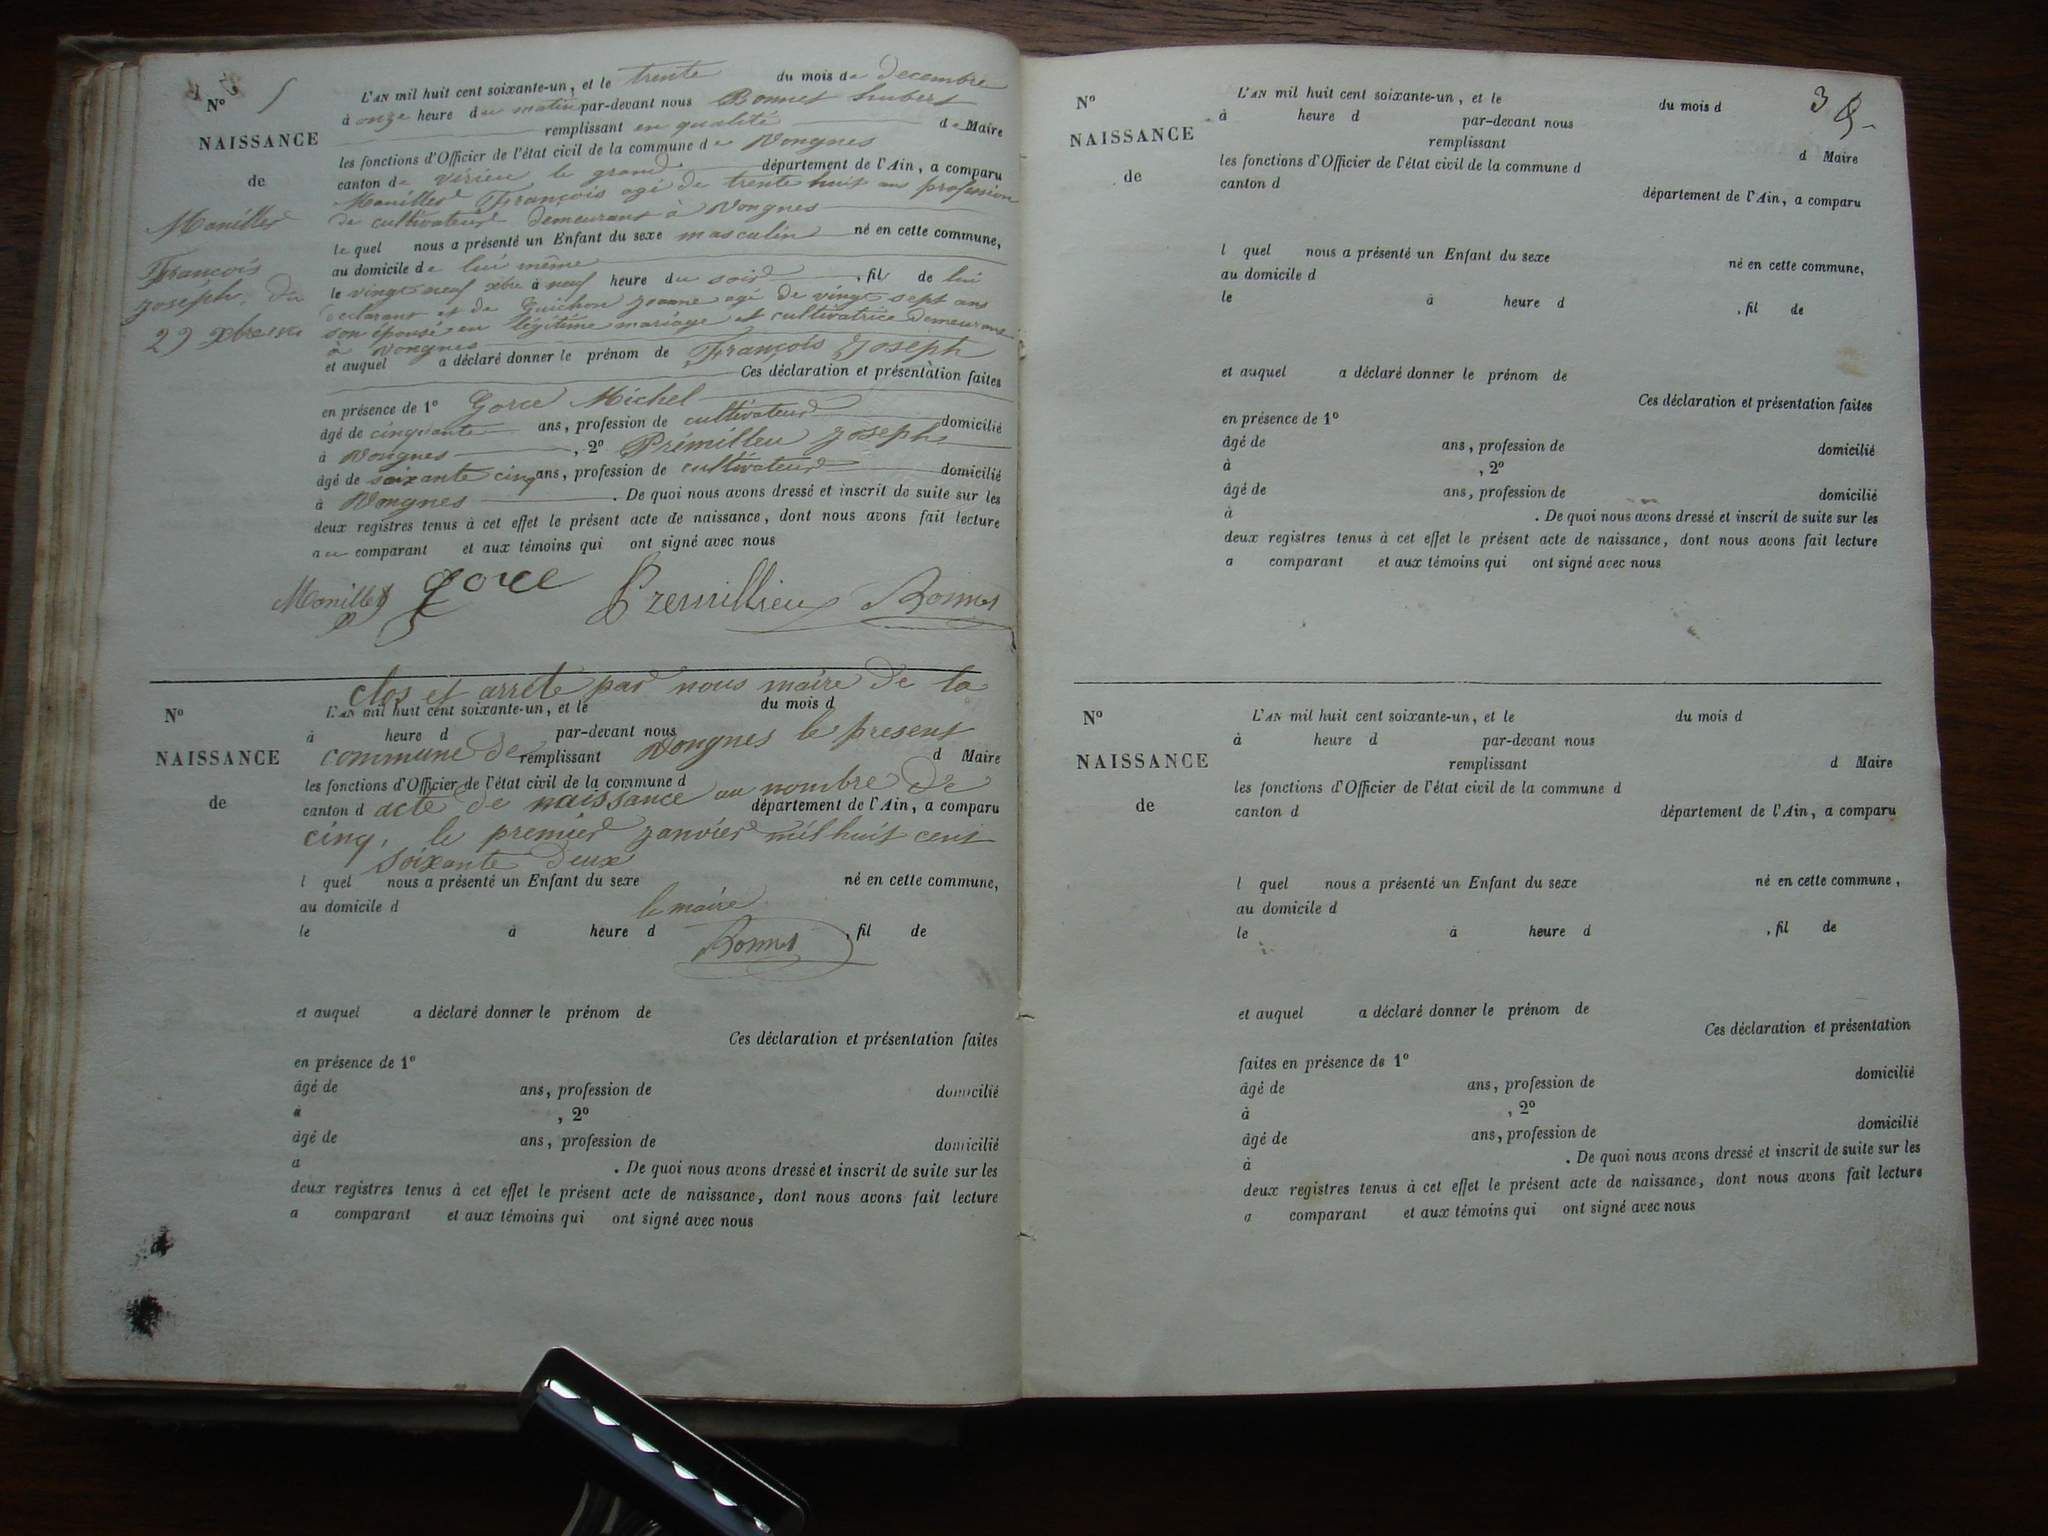 Nº 5
NAISSANCE
de
Manillet
François
Joseph, du
29 xbre
L'AN mil huit cent soixante-un, et le trente du mois de decembre
à onze heure du matin par-devant nous Bonnet hubert
remplissant en qualité de Maire
les fonctions d'Officier de l'état civil de la commune de Vongnes
canton de virieu le grand département de l'Ain, a comparu
Manillet François agé de trente huit ans profession
de cultivateur demeurant à Vongnes
le quel nous a présenté un Enfant du sexe masculin né en cette commune,
au domicile de lui même
le vingt neuf xbre à neuf heure du soir , fil de lui
declarant et de Guichon Jeanne agé de vingt sept ans
son épouse en légitime mariage et cultivatrice demeurant
à Vongnes
et auquel a déclaré donner le prénom de François Joseph
Ces déclaration et présentation faites
en présence de 1º Gorce Michel
âgé de cinquante ans, profession de cultivateur domicilié
à Vongnes , 2º Prémilleu Joseph
âgé de soixante cinq ans, profession de cultivateur domicilié
à Vongnes . De quoi nous avons dressé et inscrit de suite sur les
deux registres tenus à cet effet le présent acte de naissance, dont nous avons fait lecture
au comparant et aux témoins qui ont signé avec nous
Manillet gorce Premillieu Bonnet
Nº
NAISSANCE
de
clos et arrété par nous maire de la
L'AN mil huit cent soixante-un, et le du mois d
à heure d par-devant nous
commune de Vongnes le present
remplissant d Maire
les fonctions d'Officier de l'état civil de la commune d
acte de naissance au nombre de
canton d département de l'Ain, a comparu
cinq, le premier janvier mil huit cent
soixante deux
l quel nous a présenté un Enfant du sexe né en cette commune,
au domicile d le maire
le à heure d , fil de
Bonnet
et auquel a déclaré donner le prénom de
Ces déclaration et présentation faites
en présence de 1º
âgé de ans, profession de domicilié
à , 2º
âgé de ans, profession de domicilié
a . De quoi nous avons dressé et inscrit de suite sur les
deux registres tenus à cet effet le présent acte de naissance, dont nous avons fait lecture
a comparant et aux témoins qui ont signé avec nous
3
Nº
NAISSANCE
de
L'AN mil huit cent soixante-un, et le du mois d
à heure d par-devant nous
remplissant d Maire
les fonctions d'Officier de l'état civil de la commune d
canton d département de l'Ain, a comparu
l quel nous a présenté un Enfant du sexe né en cette commune,
au domicile d
le à heure d , fil de
et auquel a déclaré donner le prénom de
Ces déclaration et présentation faites
en présence de 1º
âgé de ans, profession de domicilié
à , 2º
âgé de ans, profession de domicilié
à . De quoi nous avons dressé et inscrit de suite sur les
deux registres tenus à cet effet le présent acte de naissance, dont nous avons fait lecture
a comparant et aux témoins qui ont signé avec nous
Nº
NAISSANCE
de
L'AN mil huit cent soixante-un, et le du mois d
à heure d par-devant nous
remplissant d Maire
les fonctions d'Officier de l'état civil de la commune d
canton d département de l'Ain, a comparu
l quel nous a présenté un Enfant du sexe né en cette commune,
au domicile d
le à heure d , fil de
et auquel a déclaré donner le prénom de
Ces déclaration et présentation
faites en présence de 1º
âgé de ans, profession de domicilié
à , 2º
âgé de ans, profession de domicilié
à . De quoi nous avons dressé et inscrit de suite sur les
deux registres tenus à cet effet le présent acte de naissance, dont nous avons fait lecture
a comparant et aux témoins qui ont signé avec nous